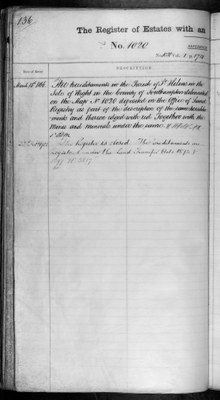 136
The Register of Estates with an
No. 1020
DESCRIPTION.
Date of Entry.
The hereditaments in the Parish of St Helens in the
Isle of Wight in the County of Southampton delineated
on the Map No 1020 deposited in the Office of Land
Registry as part of the description of the same heredita-
ments and thereon edged with red Together with the
Mines and minerals under the same
The Register is closed. The hereditaments are
registered under the Land Transfer Act 1875